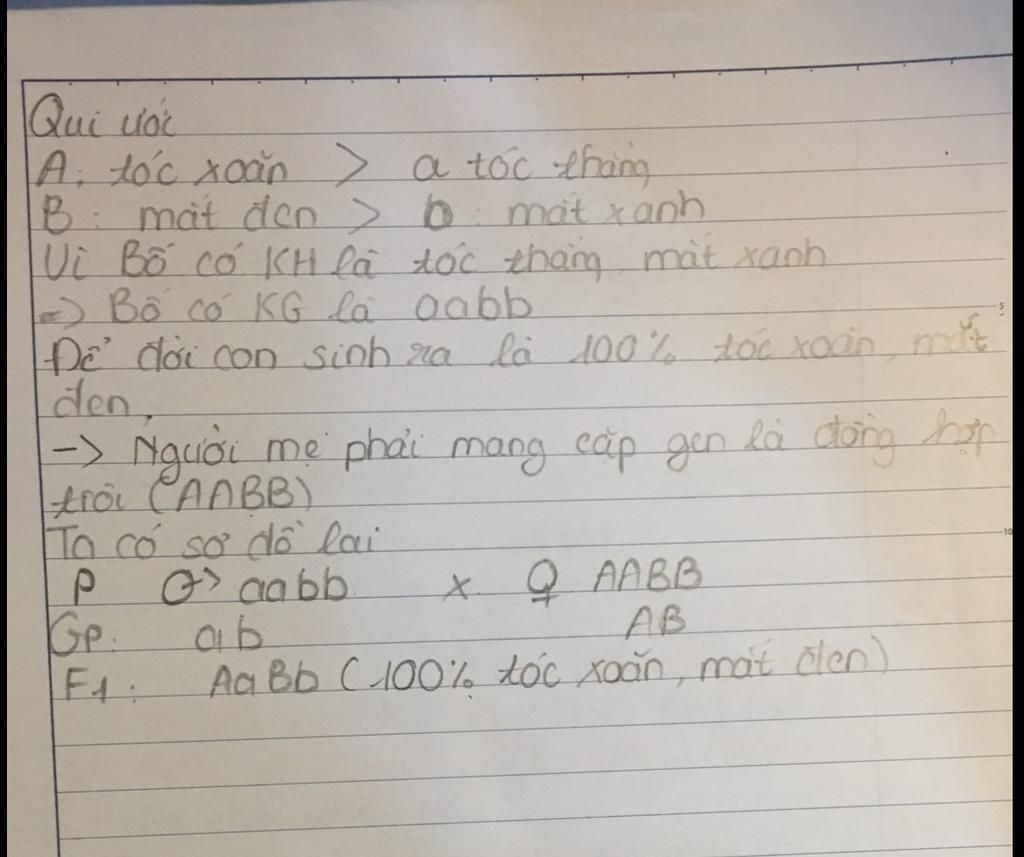 Qui ước
A: tóc xoăn > a tóc thẳng
B: mắt đen > b: mắt xanh
Vì Bố có KH là tóc thẳng, mắt xanh
=> Bố có KG là aabb
Để đời con sinh ra là 100% tóc xoăn, mắt
đen,
-> Người mẹ phải mang cặp gen là đồng hợp
trội (AABB)
Ta có sơ đồ lai
P ♂ aabb x ♀ AABB
Gp: ab AB
F1: AaBb (100% tóc xoăn, mắt đen)
5
10